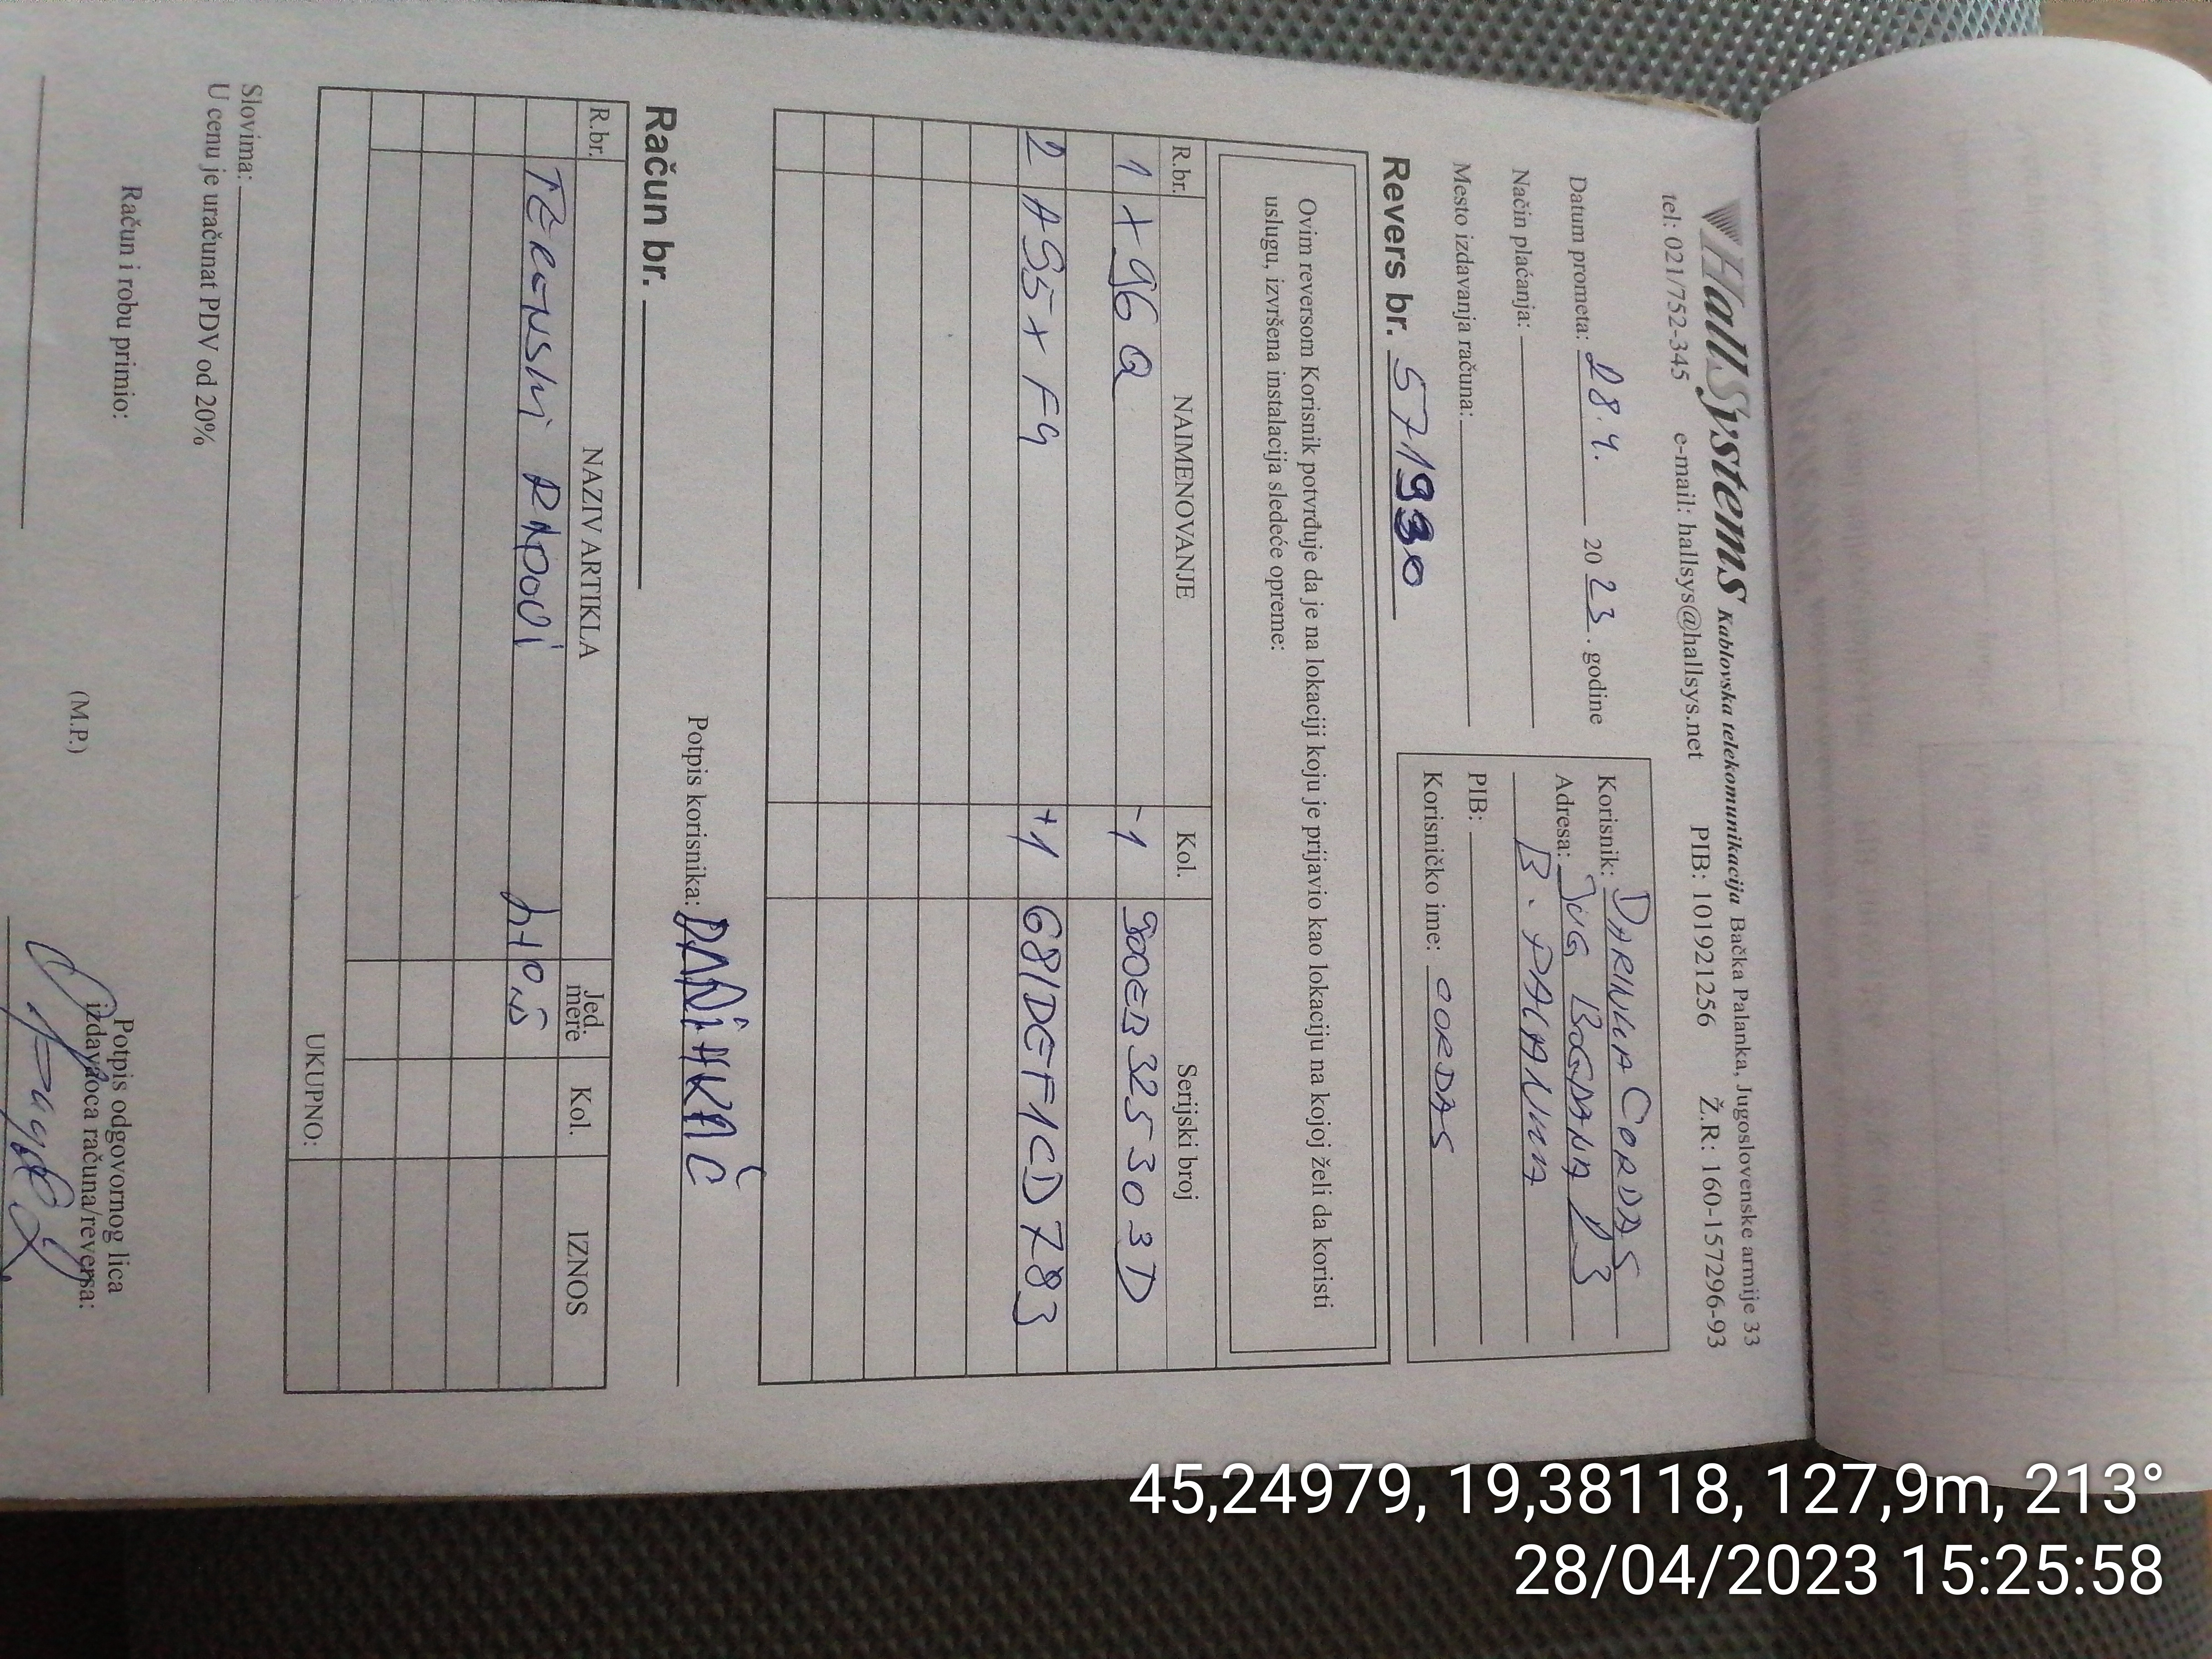 HallSystems Kablovska telekomunikacija Bačka Palanka, Jugoslovenske armije 33
tel: 021/752-345 e-mail: hallsys@hallsys.net PIB: 101921256 Ž.R: 160-157296-93
Datum prometa: 28.4. 2023. godine
Način plaćanja:
Mesto izdavanja računa:
Korisnik: DARINKA CORDAS
Adresa: JUG BOGDANA 23
B. PALANKA
PIB:
Korisničko ime: CORDAS
Revers br. 571930
Ovim reversom Korisnik potvrđuje da je na lokaciji koju je prijavio kao lokaciju na kojoj želi da koristi
uslugu, izvršena instalacija sledeće opreme:
R.br. NAIMENOVANJE Kol. Serijski broj
1 X96Q -1 900EB325303D
2 A95X F4 +1 681DEF1CD783
Potpis korisnika:
Račun br.
R.br. NAZIV ARTIKLA Jed. mere Kol. IZNOS
TERENSKI RADOVI
UKUPNO:
Slovima:
U cenu je uračunat PDV od 20%
Račun i robu primio:
(M.P.)
Potpis odgovornog lica
izdavaoca računa/reversa:
45,24979, 19,38118, 127,9m, 213°
28/04/2023 15:25:58